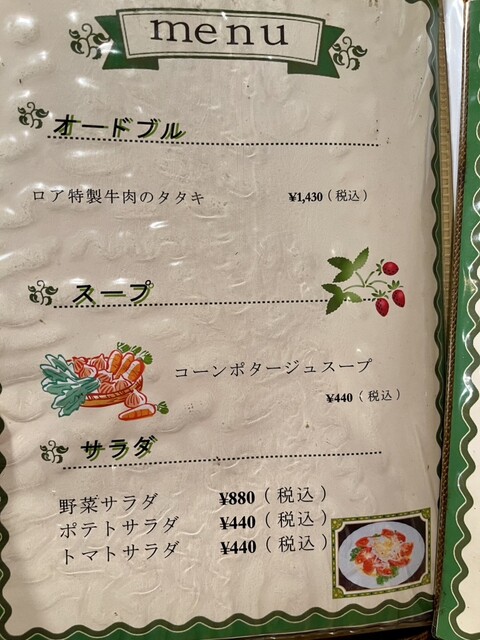 menu
オードブル
ロア特製牛肉のタタキ ¥1,430（税込）
スープ
コーンポタージュスープ
¥440（税込）
サラダ
野菜サラダ ¥880（税込）
ポテトサラダ ¥440（税込）
トマトサラダ ¥440（税込）